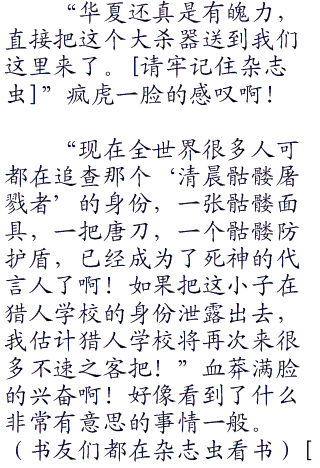 “华夏还真是有魄力，
直接把这个大杀器送到我们
这里来了。[请牢记住杂志
虫]”疯虎一脸的感叹啊！
“现在全世界很多人可
都在追查那个‘清晨骷髅屠
戮者’的身份，一张骷髅面
具，一把唐刀，一个骷髅防
护盾，已经成为了死神的代
言人了啊！如果把这小子在
猎人学校的身份泄露出去，
我估计猎人学校将再次来很
多不速之客把！”血莽满脸
的兴奋啊！好像看到了什么
非常有意思的事情一般。
（书友们都在杂志虫看书）[